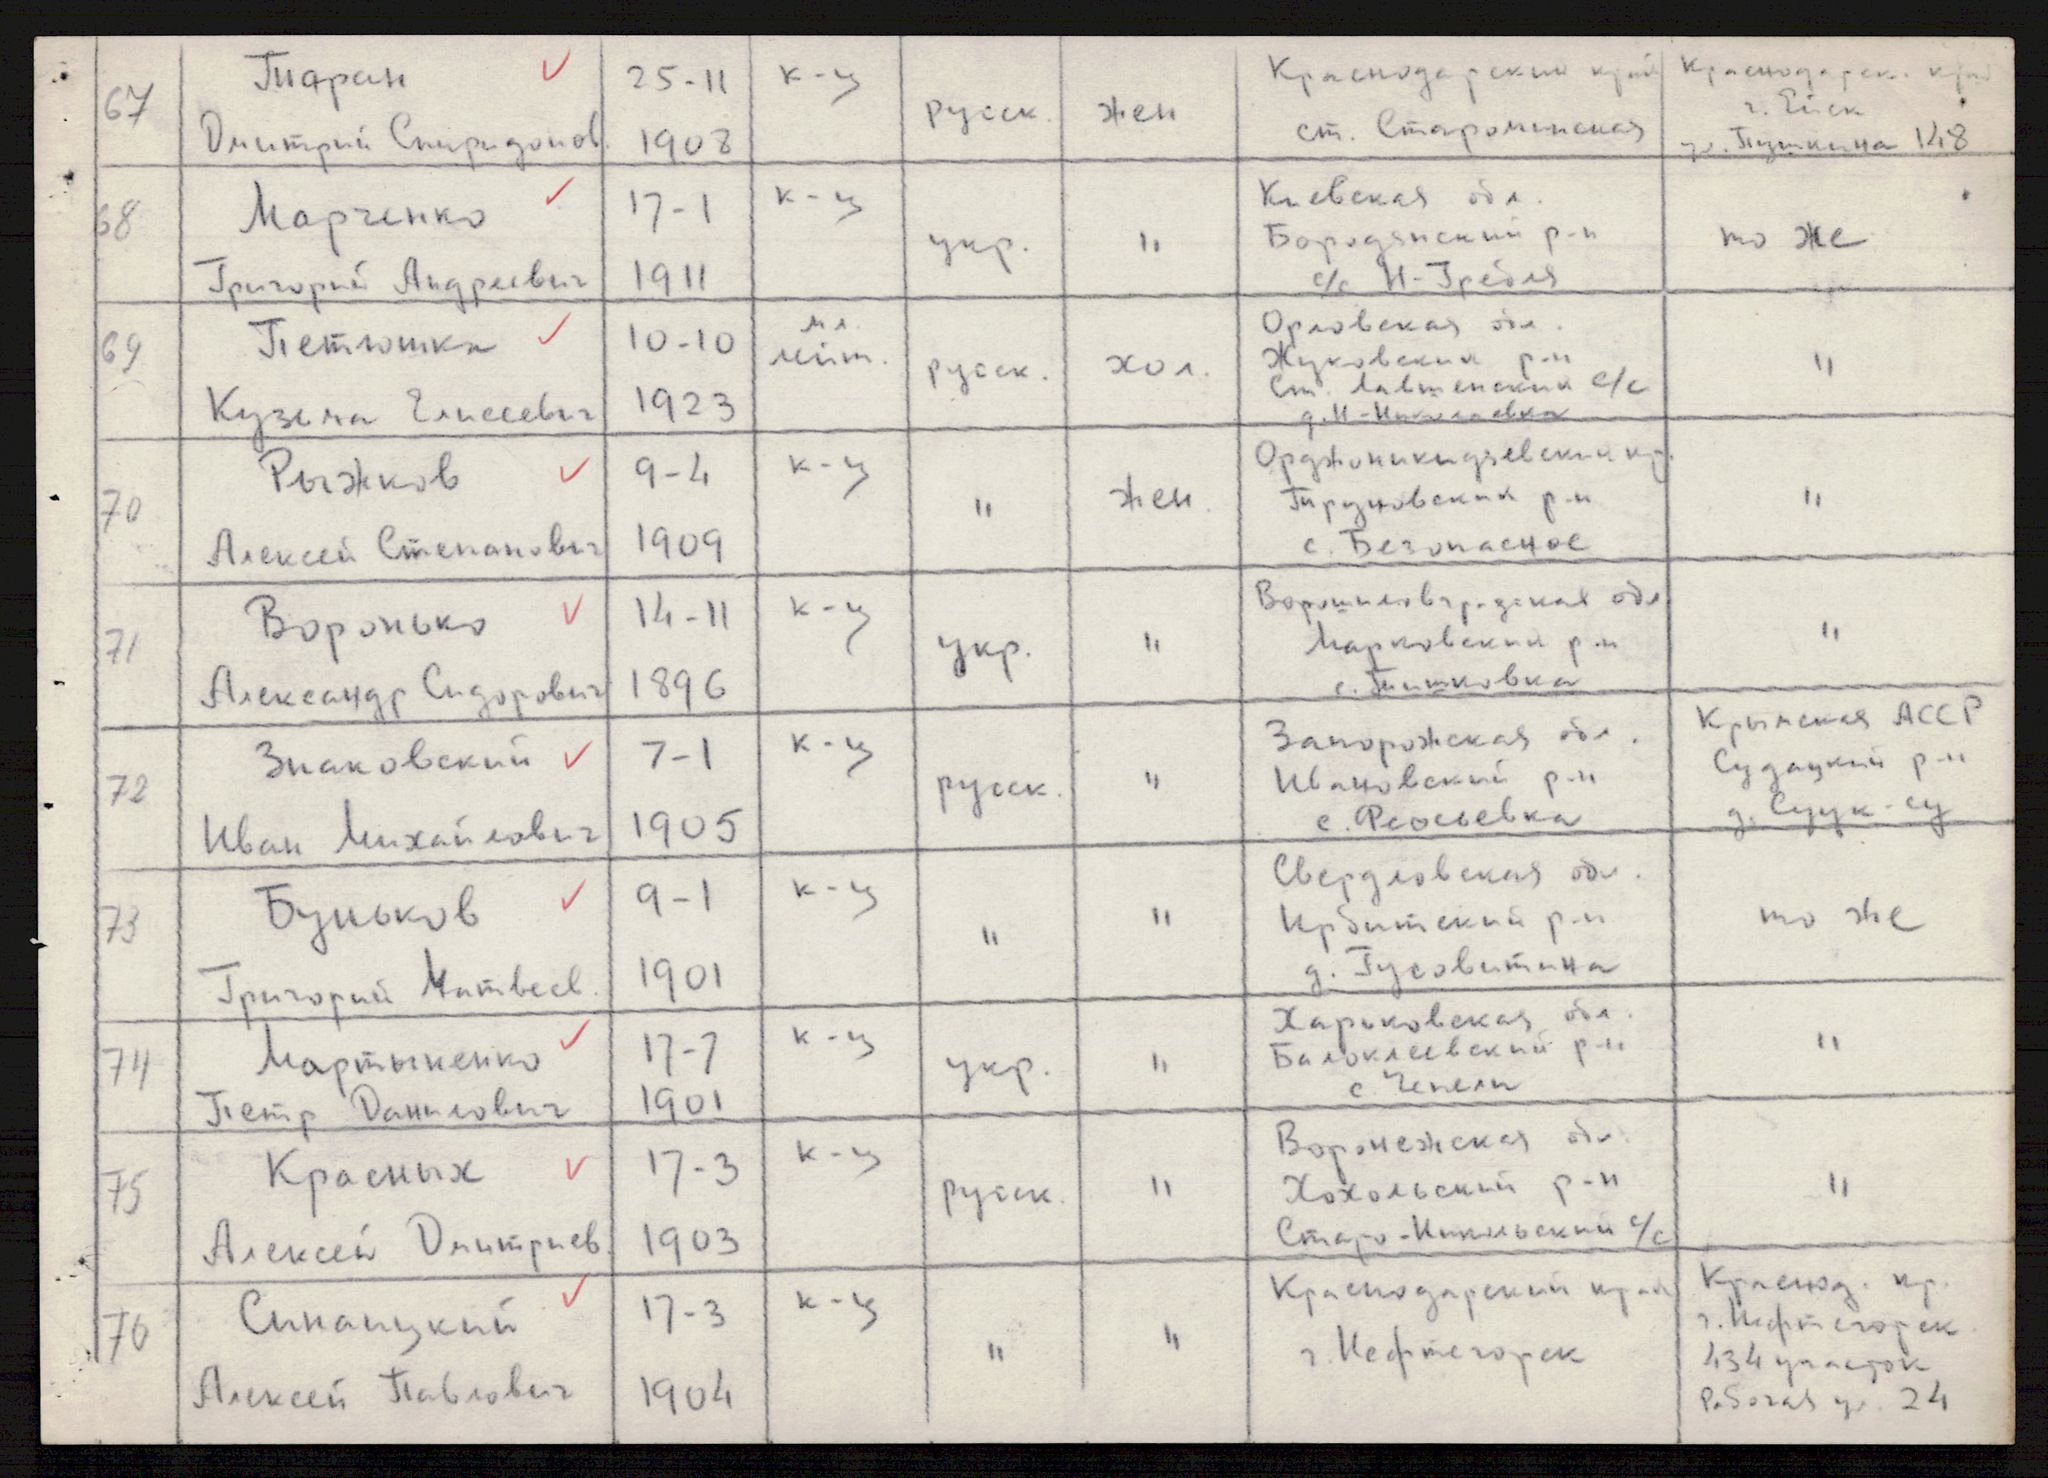 67
Таран
Дмитрий Спиридонов.
25-11
1908
к-ц
русск.
жен
Краснодарский край
ст. Староминская
Краснодарск. край
г. Ейск
ул. Пушкина 148
68
Марченко
Григорий Андреевич
17-1
1911
к-ц
укр.
"
Киевская обл.
Бородянский р-н
с/с Н-Гребля
то же
69
Петюшка
Кузьма Елисеевич
10-10
1923
мл.
лейт.
русск.
хол.
Орловская обл.
Жуковский р-н
с/с
д. Н-Николаевка
"
70
Рыжков
Алексей Степанович
9-4
1909
к-ц
"
жен.
Орджоникидзевский кр.
Труновский р-н
с. Безопасное
"
71
Воронько
Александр Сидорович
14-11
1896
к-ц
укр.
"
Ворошиловградская обл.
Марковский р-н
с. Тишковка
"
72
Знаковский
Иван Михайлович
7-1
1905
к-ц
русск.
"
Запорожская обл.
Ивановский р-н
с.
Крымская АССР
Судацкий р-н
д. Суук-су
73
Буньков
Григорий Матвеев.
9-1
1901
к-ц
"
"
Свердловская обл.
Ирбитский р-н
д.
то же
74
Мартыненко
Петр Данилович
17-7
1901
к-ц
укр.
"
Харьковская обл.
Балоклеевский р-н
с. Чепели
"
75
Красных
Алексей Дмитриев.
17-3
1903
к-ц
русск.
"
Воронежская обл.
Хохольский р-н
Старо-Никольский с/с
"
76
Синаицкий
Алексей Павлович
17-3
1904
к-ц
"
"
Краснодарский край
г. Нефтегорск
Краснод. кр.
г. Нефтегорск
434 участок
Рабочая ул. 24